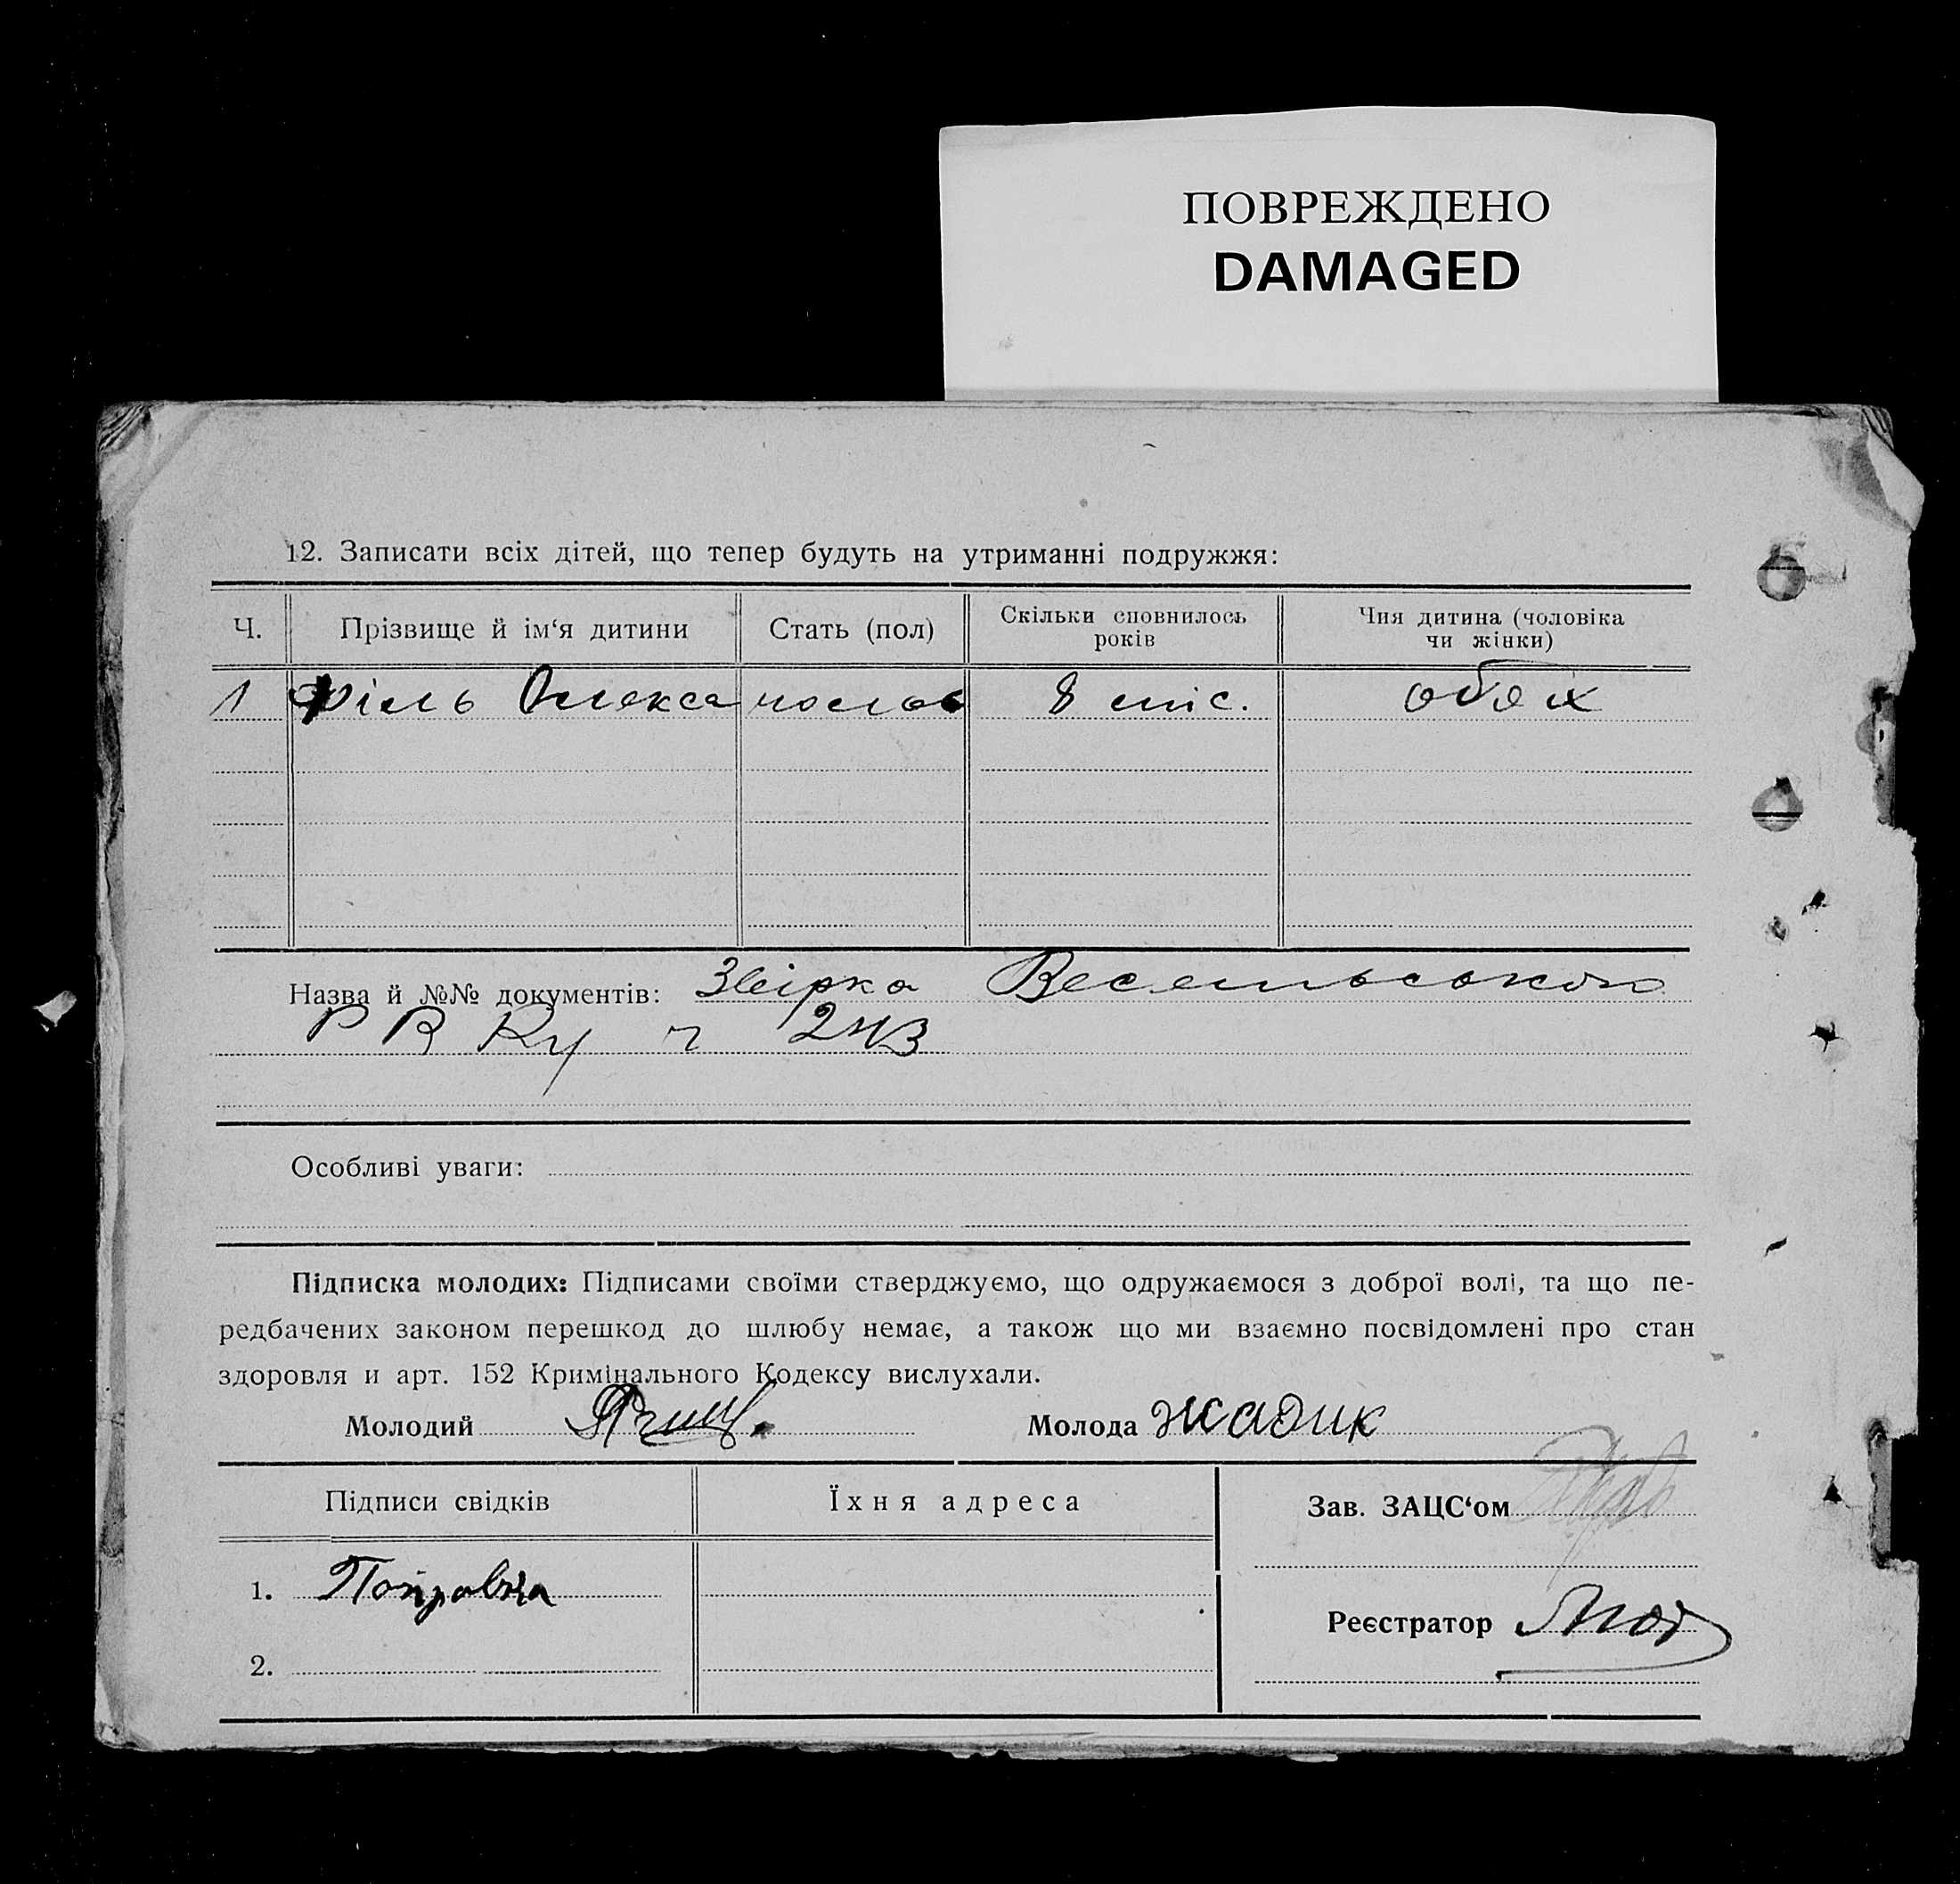 ПОВРЕЖДЕНО
DAMAGED
12. Записати всіх дітей, що тепер будуть на утриманні подружжя:
Ч. Прізвище й ім‘я дитини Стать (пол) Скільки сповнилось років Чия дитина (чоловіка чи жінки)
1 Філь Олекса 8 міс. обоїх
Назва й №№ документів: Звірка
Р В К
Особливі уваги:
Підписка молодих: Підписами своїми стверджуємо, що одружаємося з доброї волі, та що пе-
редбачених законом перешкод до шлюбу немає, а також що ми взаємно посвідомлені про стан
здоровля и арт. 152 Кримінального Кодексу вислухали.
Молодий Молода жадик
Підписи свідків Їхня адреса Зав. ЗАЦС‘ом
1.
Реєстратор
2.